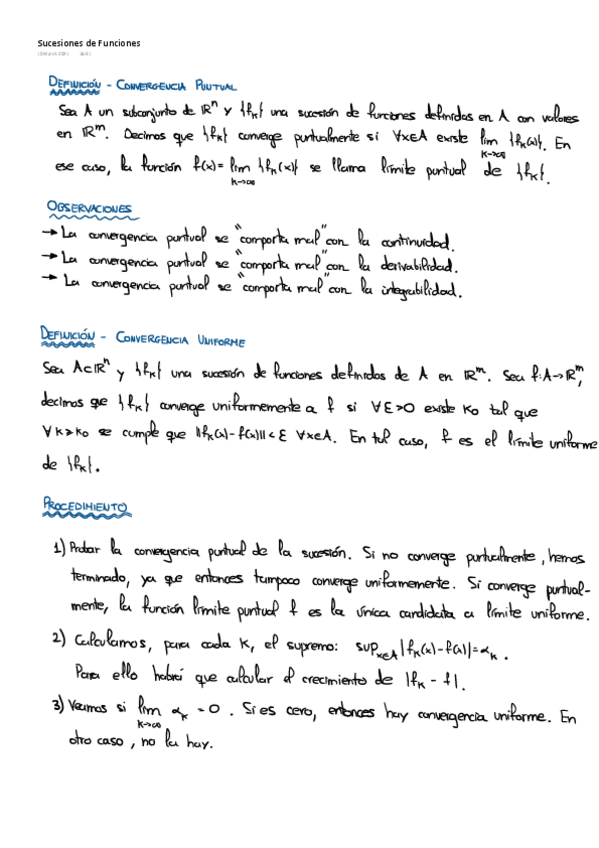 Sucesiones de Funciones
DEFINICIÓN - CONVERGENCIA PUNTUAL
Sea A un subconjunto de ℝⁿ y {fₖ} una sucesión de funciones definidas en A con valores
en ℝᵐ. Decimos que {fₖ} converge puntualmente si ∀x∈A existe lim {fₖ(x)}. En
k→∞
ese caso, la función f(x) = lim {fₖ(x)} se llama límite puntual de {fₖ}.
k→∞
OBSERVACIONES
→ La convergencia puntual se "comporta mal" con la continuidad.
→ La convergencia puntual se "comporta mal" con la derivabilidad.
→ La convergencia puntual se "comporta mal" con la integrabilidad.
DEFINICIÓN - CONVERGENCIA UNIFORME
Sea A⊂ℝⁿ y {fₖ} una sucesión de funciones definidas de A en ℝᵐ. Sea f: A→ℝᵐ,
decimos que {fₖ} converge uniformemente a f si ∀ε>0 existe k₀ tal que
∀k≥k₀ se cumple que ||fₖ(x)-f(x)||<ε ∀x∈A. En tal caso, f es el límite uniforme
de {fₖ}.
PROCEDIMIENTO
1) Probar la convergencia puntual de la sucesión. Si no converge puntualmente, hemos
terminado, ya que entonces tampoco converge uniformemente. Si converge puntual-
mente, la función límite puntual f es la única candidata a límite uniforme.
2) Calculamos, para cada k, el supremo: supₓ∈A |fₖ(x)-f(x)|=αₖ.
Para ello habrá que calcular el crecimiento de |fₖ - f|.
3) Veamos si lim αₖ = 0. Si es cero, entonces hay convergencia uniforme. En
k→∞
otro caso, no la hay.